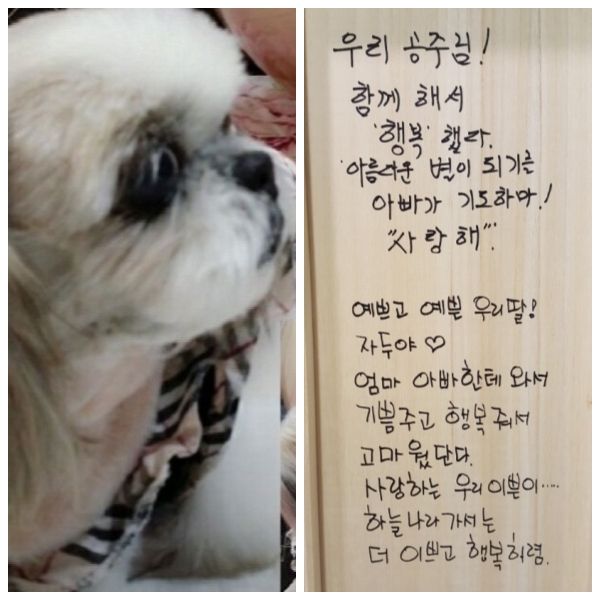 우리 공주님!
함께 해서
'행복' 했다.
'아름다운 별이 되기를
아빠가 기도하마!
"사랑해"
예쁘고 예쁜 우리딸!
자두야 ♡
엄마 아빠한테 와서
기쁨주고 행복줘서
고마웠단다.
사랑하는 우리이쁜이....
하늘나라가서는
더 이쁘고 행복하렴.